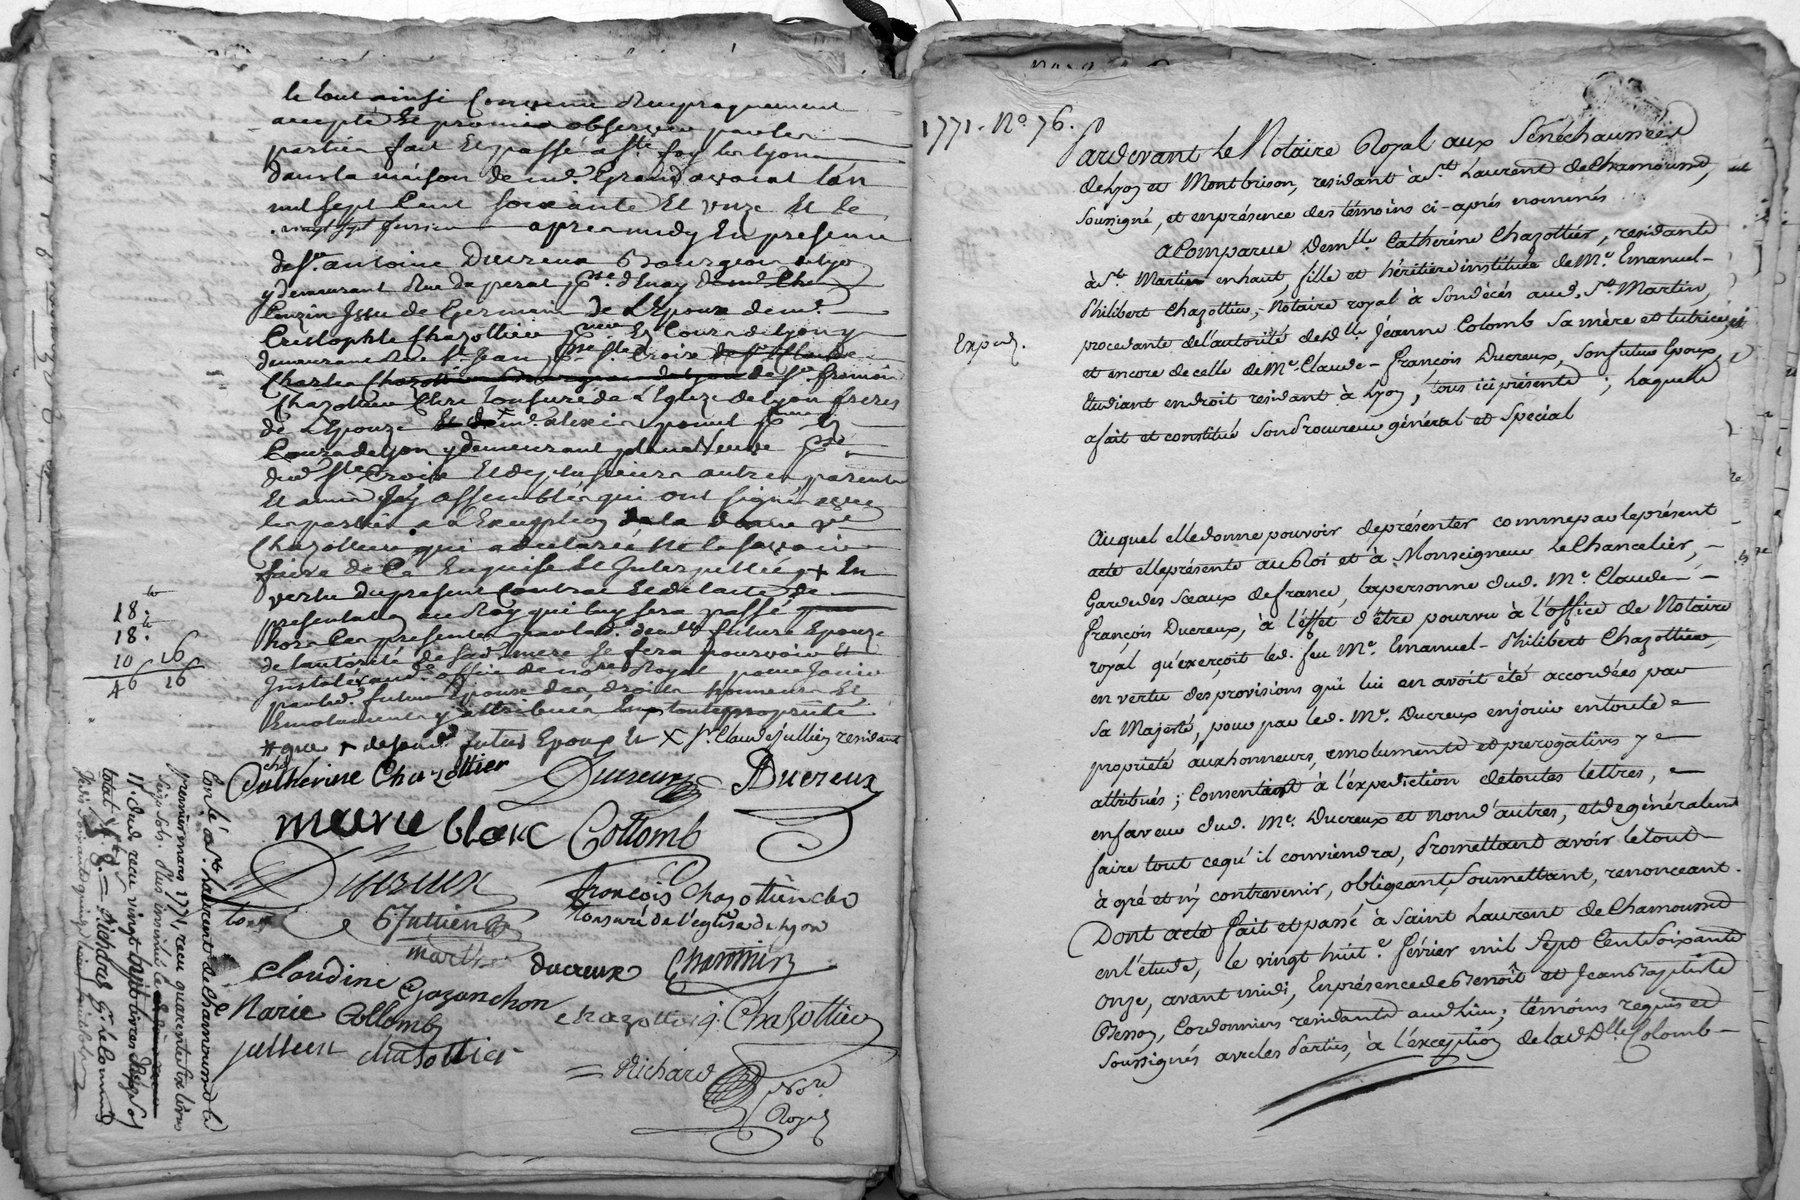 le tout ainsi Convenu Reciproquement
accepté Et promis observer par les
parties fait Et passé a Ste. foy les Lyon
dans la maison de md. Grand avocat l'an
mil sept Cent soixante Et onze Et le
vingt sept fevrier apres midy En presence
de Sr. antoine Ducreux Bourgeois de Lyon
y demeurant Rue du perat psse. d'Enay
Couzin Issu de Germain de L'Epoux de md.
Cristophle Chazottier Es Cours de Lyon y
demeurant Rue St Jean psse Ste. Croix
Charles Chazottier Bourgeois de Lyon de Sr. francois
Chazottier Clerc Tonsuré de L'Eglize de Lyon freres
de L'Epouze Et de md. alexis
Cours de Lyon y demeurant place Neuve psse.
dud. Ste Croix Et de plusieurs autres parents
Et amis assemblés qui ont signé avec
les parties a L'Exception de la
Chazottier qui a declarée ne le savoir
faire de Ce Enquise Et Interpellée + En
vertu du present Contrat Et de l'acte de
presentation au Roy qui luy sera passé
hors Ces presentes par lad. demlle. future Epouze
de l'autorité de sad. mere se fera pourvoir Et
Installer aud. office de nore. Royal pour Jouir
par led. futur Epoux des droits honneurs Et
Emoluments y attribués En toute propriété
que + desd. futur Epoux Et X Sr. Claude Jullien residant
Catherine Chazottier Ducreux Ducreux
marie blanc Collomb
Ducreux françois Chazottier clerc
Jullien tonsuré de l'eglise de Lyon
marthe ducreux Charmin
claudine Gozanchon
Marie Collomb chazottier Chazottier
jullien chazottier
Richard
Nore.
Royal
18.
18.
10 16
46 16
Conlé à St. Laurent de Chamousset le
premier mars 1771, recu quarente six livres
seize sols. Plus insinué le
11. dud. recu vingt huit livres dix sols
total Richard Gr. le Comman
1771. No. 76.
Pardevant Le Notaire Royal aux Sénéchaussées
de Lyon et Montbrison, residant à St. Laurent de Chamousset,
soussigné, et en présence des témoins ci-aprés nommés
a Comparue Demlle. Catherine Chazottier, residante
à St. Martin en haut, fille et héritiere instituée de Me. Emanuel-
Philibert Chazottier, Notaire royal à son décés aud. St. Martin,
Expéd.
procedante de l'autorité de Dlle. Jeanne Colomb sa mère et tutrice,
et encore de celle de Me. Claude-François Ducreux, son futur Epoux,
Etudiant en droit residant à Lyon, tous ici présents; Laquelle
a fait et constitué son Procureur général et spécial
Auquel elle donne pouvoir de présenter comme par le présent
acte elle présente au Roi et à Monseigneur Le Chancelier,
Garde des Sceaux de france, la personne dud. Me. Claude-
François Ducreux, à l'éffet d'être pourvu à l'office de Notaire
royal qu'exerçoit led. feu Me. Emanuel-Philibert Chazottier,
en vertu des provisions qui lui en avoit été accordées par
Sa Majesté, pour par led. Me. Ducreux en jouir en toute
propriété aux honneurs, emoluments et prerogatives y
attribués; Consentant à l'expediction de toutes lettres,
en faveur dud. Me. Ducreux et non d'autres, et de généralement
faire tout ce qu'il conviendra, Promettant avoir le tout
à gré et n'y contrevenir, obligeant, soumettant, renonceant.
Dont acte fait et passé à Saint Laurent de Chamousset
en l'étude, le vingt huite. Février mil Sept Cent Soixante
Onze, avant midi, En présence de Benoit et Jean Baptiste
Besson, Cordonniers residants aud. Lieu; témoins requis et
Soussignés avec les Parties, à l'éxception de lad. Dlle. Colomb